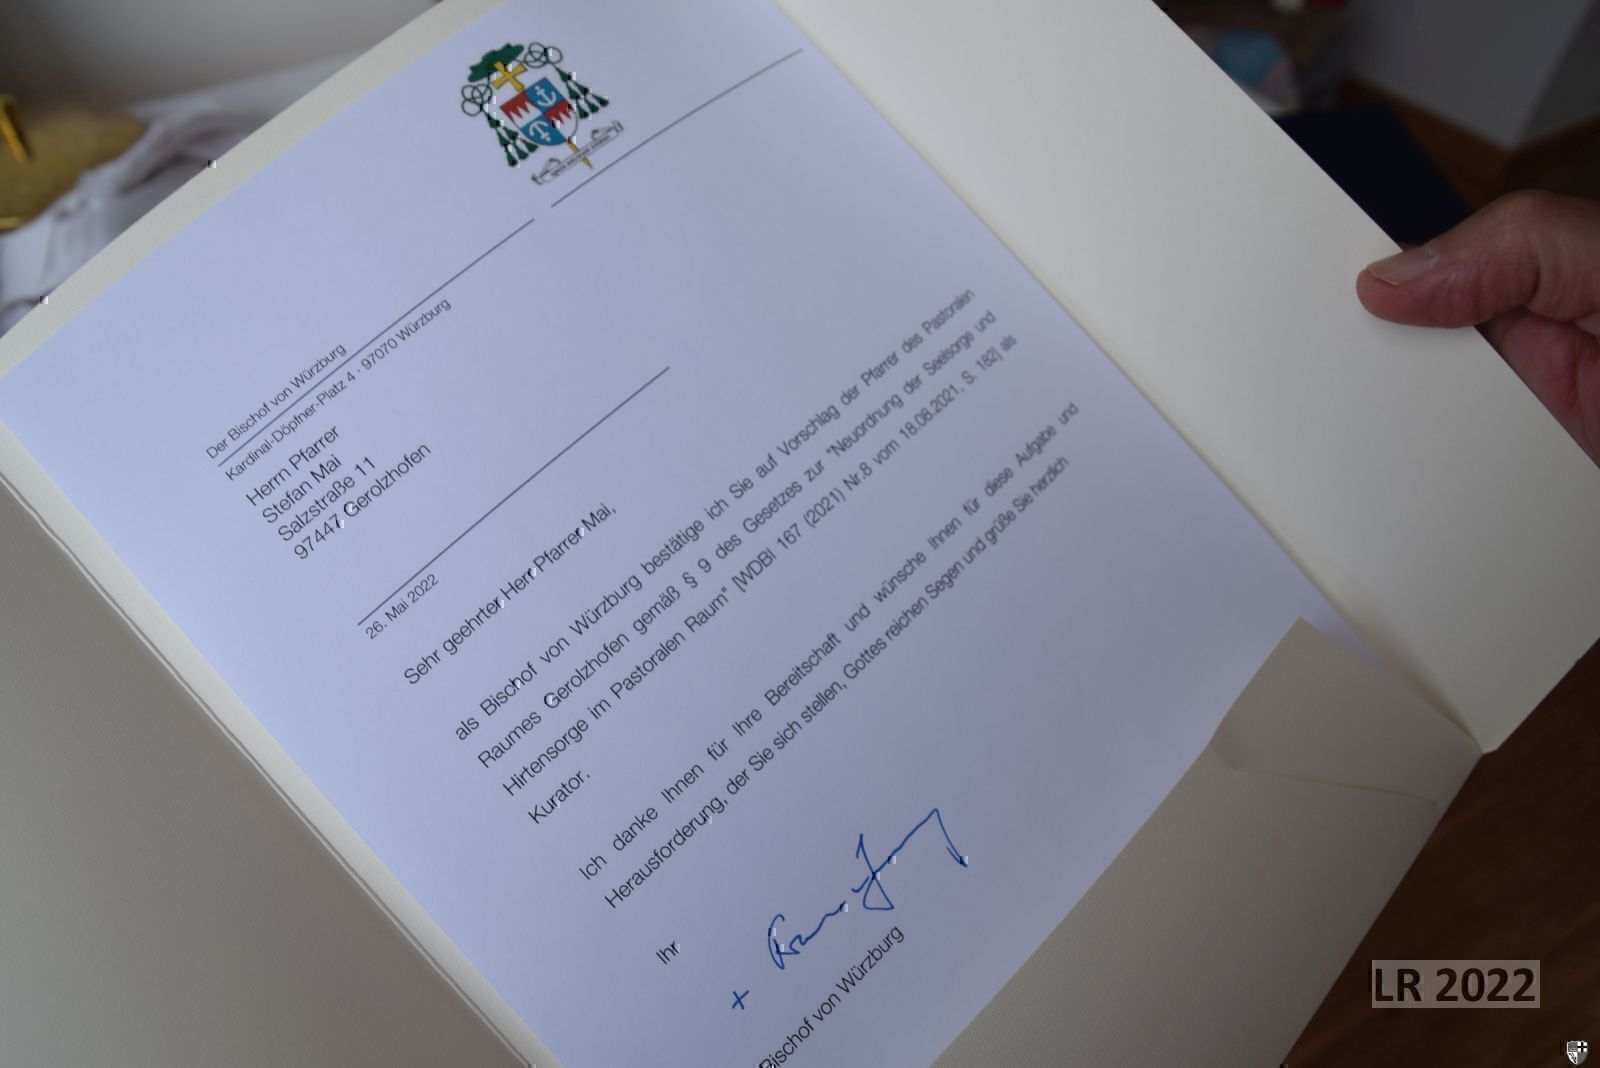 Der Bischof von Würzburg
Kardinal-Döpfner-Platz 4 · 97070 Würzburg
Herrn Pfarrer
Stefan Mai
Salzstraße 11
97447 Gerolzhofen
26. Mai 2022
Sehr geehrter Herr Pfarrer Mai,
als Bischof von Würzburg bestätige ich Sie auf Vorschlag der Pfarrer des Pastoralen
Raumes Gerolzhofen gemäß § 9 des Gesetzes zur "Neuordnung der Seelsorge und
Hirtensorge im Pastoralen Raum" [WDBl 167 (2021) Nr.8 vom 18.08.2021, S. 182] als
Kurator.
Ich danke Ihnen für Ihre Bereitschaft und wünsche Ihnen für diese Aufgabe und
Herausforderung, der Sie sich stellen, Gottes reichen Segen und grüße Sie herzlich
Ihr
+
Bischof von Würzburg
LR 2022